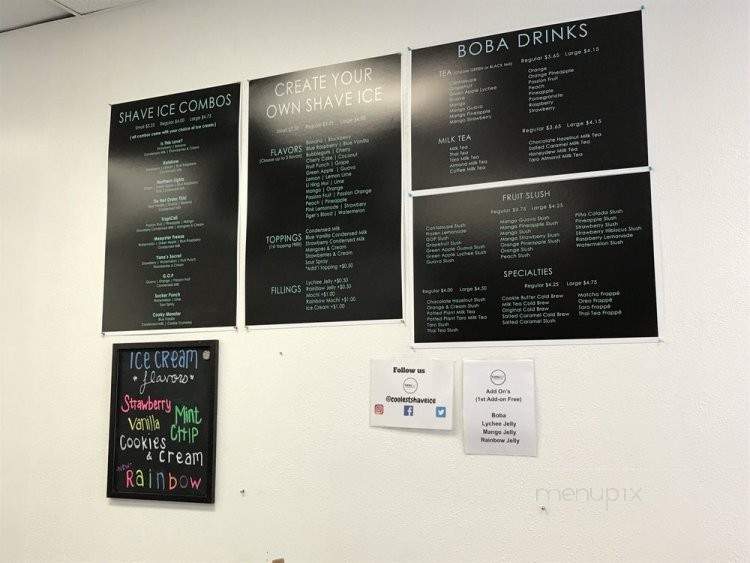 SHAVE ICE COMBOS
Small $3.25 Regular $4.00 Large $4.75
( all combos come with your choice of ice cream )
Is This Love?
Rainbow
Northern Lights
Do Not Order This!
TropiCali
Strawberry Condensed Milk | Mangoes & Cream
Monsster Freeze
Yama's Secret
Strawberries & Cream
G.O.P
Guava | Orange | Passion Fruit
Condensed Milk
Sucker Punch
Sour Spray
Cooky Monster
Blue Vanilla
CREATE YOUR
OWN SHAVE ICE
FLAVORS
(Choose up to 3 flavors)
Banana | Blackberry
Blue Raspberry | Blue Vanilla
Bubblegum | Cherry
Cherry Cake | Coconut
Fruit Punch | Grape
Green Apple | Guava
Lemon | Lemon Lime
Li Hing Mui | Lime
Mango | Orange
Passion Fruit | Passion Orange
Peach | Pineapple
Pink Lemonade | Strawberry
Tiger's Blood | Watermelon
TOPPINGS
(1st topping FREE)
Condensed Milk
Blue Vanilla Condensed Milk
Strawberry Condensed Milk
Mangoes & Cream
Strawberries & Cream
Sour Spray
*Add'l topping +$0.50
FILLINGS
Lychee Jelly +$0.50
Rainbow Jelly +$0.50
Mochi +$1.00
Rainbow Mochi +$1.00
Ice Cream +$1.00
BOBA DRINKS
TEA (Choose GREEN or BLACK tea)
Regular $3.65 Large $4.15
Cantaloupe
Grapefruit
Green Apple Lychee
Guava
Mango
Mango Guava
Mango Pineapple
Mango Strawberry
Orange
Orange Pineapple
Passion Fruit
Peach
Pineapple
Pomegranate
Raspberry
Strawberry
MILK TEA
Regular $3.65 Large $4.15
Milk Tea
Thai Tea
Taro Milk Tea
Almond Milk Tea
Coffee Milk Tea
Chocolate Hazelnut Milk Tea
Salted Caramel Milk Tea
Honeydew Milk Tea
Taro Almond Milk Tea
FRUIT SLUSH
Regular $3.75 Large $4.25
Cantaloupe Slush
Frozen Lemonade
GOP Slush
Grapefruit Slush
Green Apple Guava Slush
Green Apple Lychee Slush
Guava Slush
Mango Guava Slush
Mango Pineapple Slush
Mango Slush
Mango Strawberry Slush
Orange Pineapple Slush
Orange Slush
Peach Slush
Piña Colada Slush
Pineapple Slush
Strawberry Slush
Strawberry Hibiscus Slush
Raspberry Lemonade
Watermelon Slush
SPECIALTIES
Regular $4.00 Large $4.50
Regular $4.25 Large $4.75
Chocolate Hazelnut Slush
Orange & Cream Slush
Potted Plant Milk Tea
Potted Plant Milk Tea
Taro Slush
Thai Tea Slush
Cookie Butter Cold Brew
Milk Tea Cold Brew
Original Cold Brew
Salted Caramel Cold Brew
Salted Caramel Slush
Matcha Frappé
Oreo Frappé
Taro Frappé
Thai Tea Frappé
ICE CREAM
flavors
Strawberry
Vanilla
Mint
CHIP
Cookies
& Cream
NEW
Rainbow
Follow us
@coolestshaveice
Add On's
(1st Add-on Free)
Boba
Lychee Jelly
Mango Jelly
Rainbow Jelly
menupix